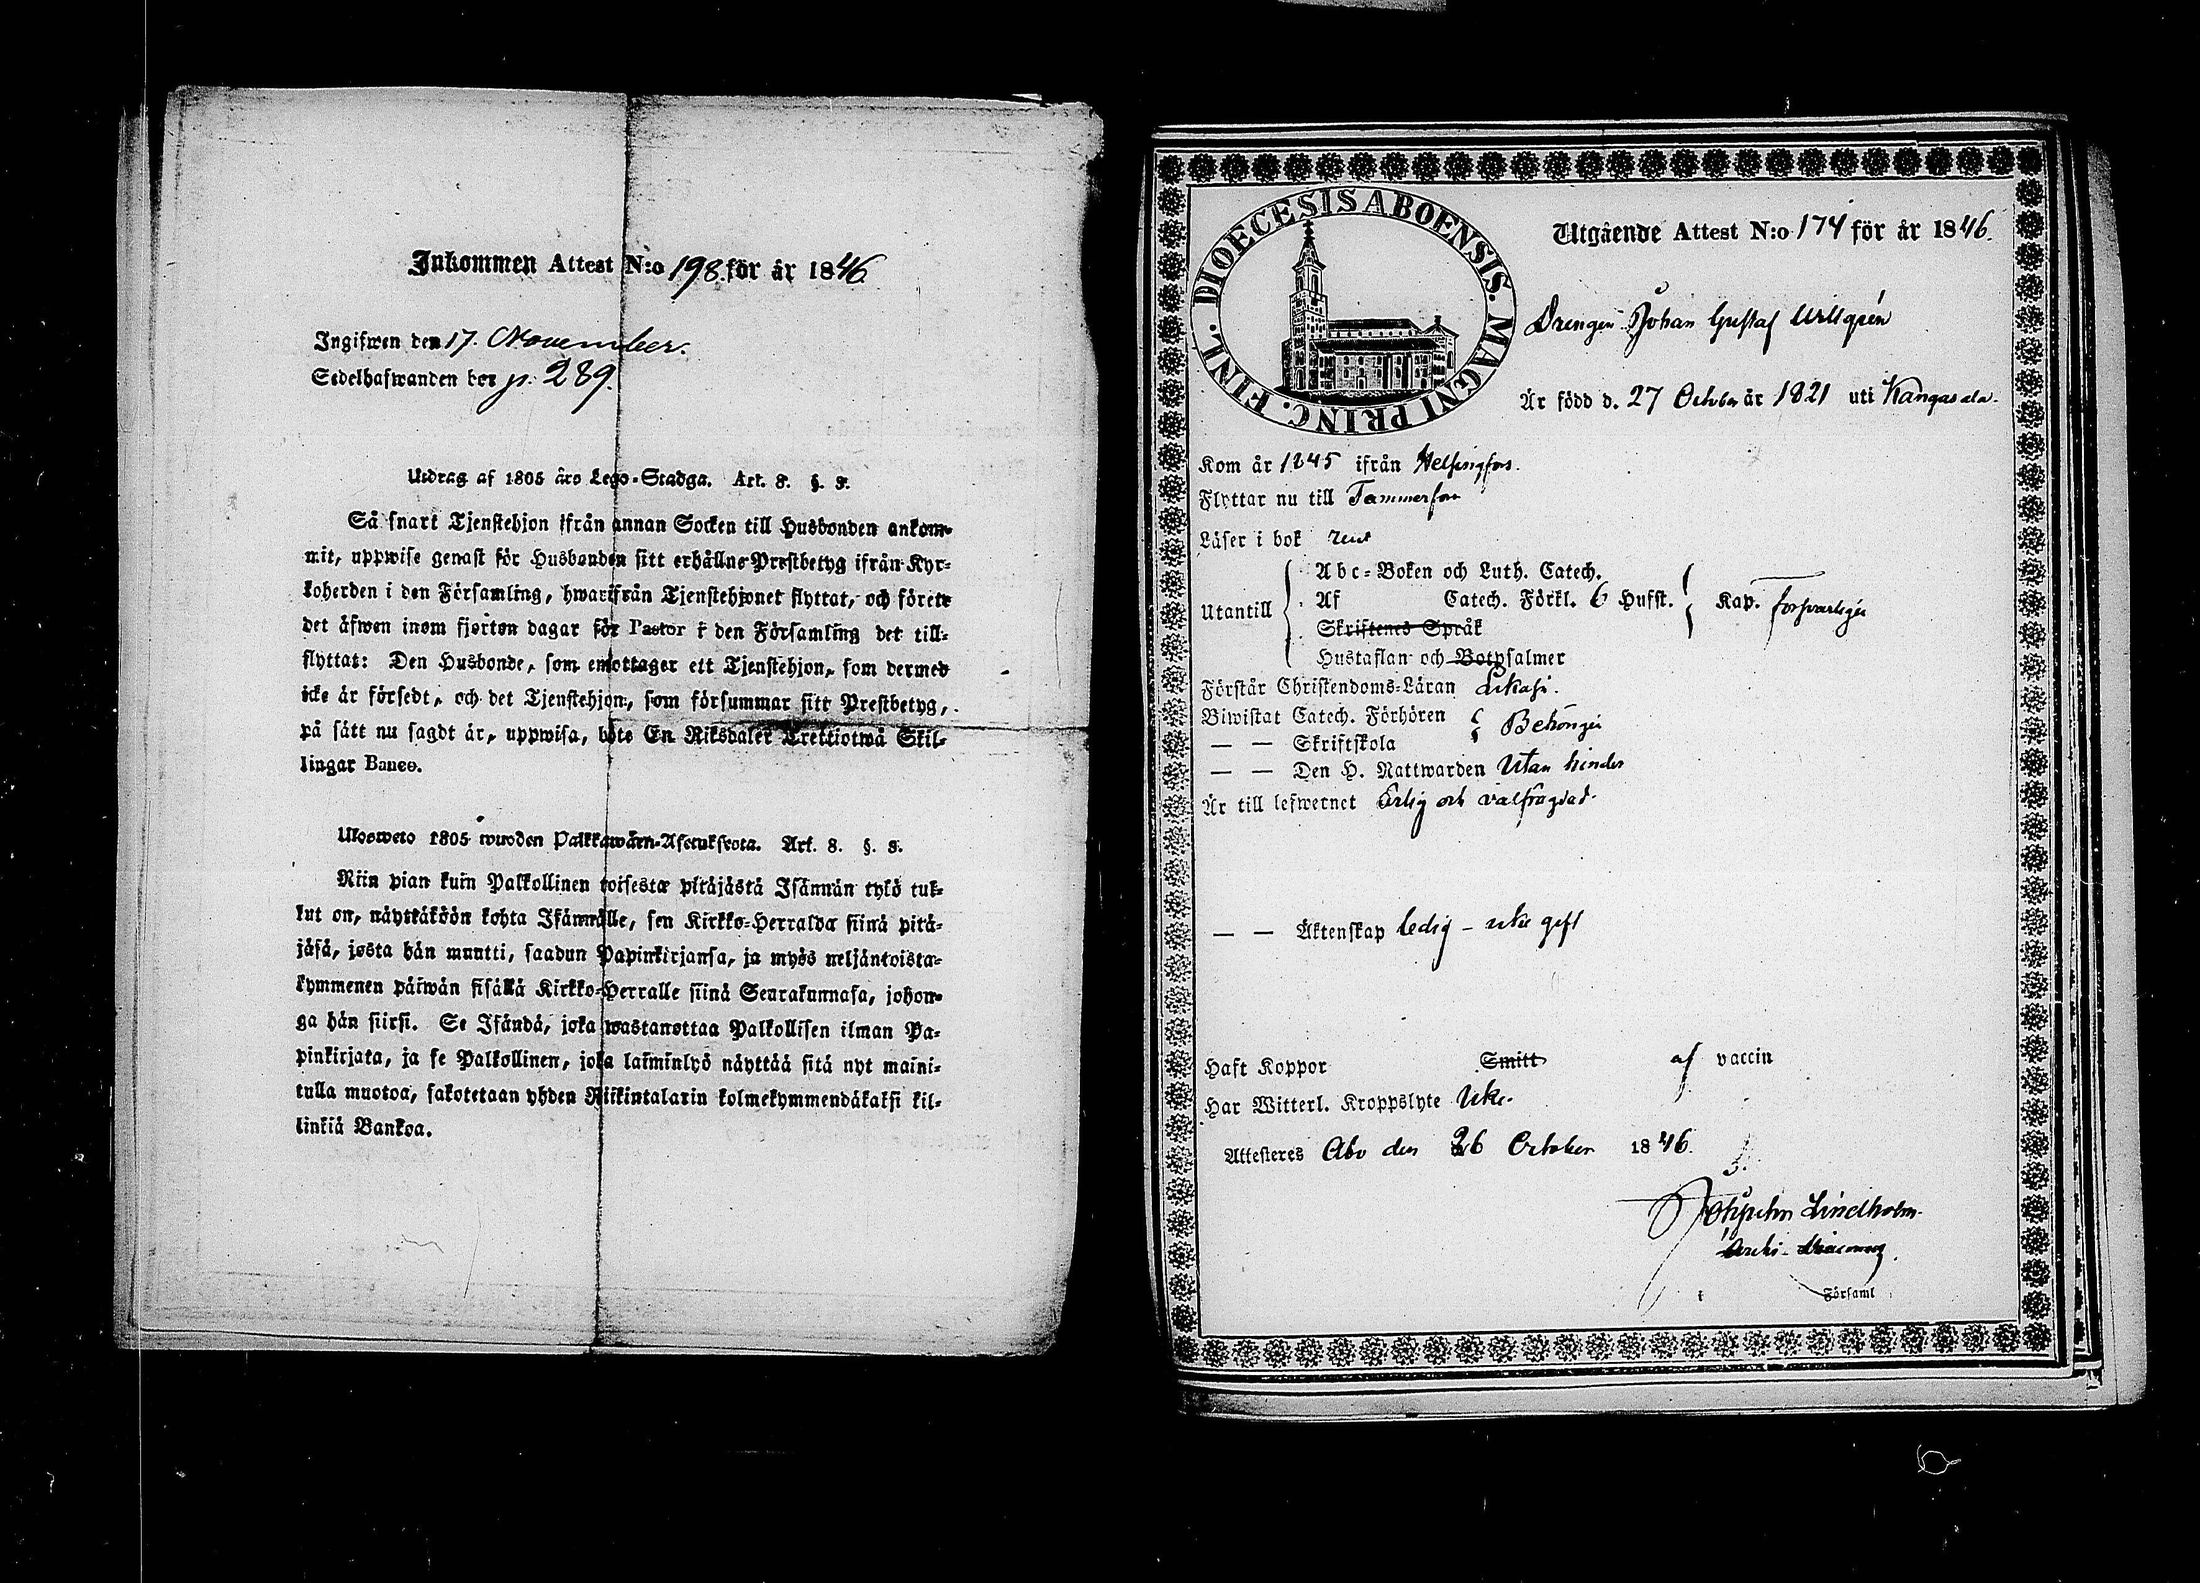 Inkommen Attest N:o 198 för år 1846
Ingifwen den 17. November.
Sedelhafwanden bor p. 289.
Utdrag af 1805 års Lego-Stadga. Art. 8. §. 8.
Så snart Tjenstehjon ifrån annan Socken till Husbonden ankom-
mit, uppwise genast för Husbonden sitt erhållne Prestbetyg ifrån Kyr-
koherden i den Församling, hwarifrån Tjenstehjonet flyttat, och förete
det äfwen inom fjorton dagar för Pastor i den Församling det till-
flyttat: Den Husbonde, som emottager ett Tjenstehjon, som dermed
icke är försedt, och det Tjenstehjon, som försummar sitt Prestbetyg,
på sätt nu sagdt är, uppwisa, böte En Riksdaler Trettiotwå Skil-
lingar Banco.
Ulosweto 1805 wuoden Palkkawäen-Asetuksesta. Art. 8. §. 8.
Niin pian kuin Palkollinen toisesta pitäjästä Isännän tykö tul-
lut on, näyttäköön kohta Isännälle, sen Kirkko-Herralda siinä pitä-
jäsä, josta hän muutti, saadun Papinkirjansa, ja myös neljäntoista-
kymmenen päiwän sisällä Kirkko-Herralle siinä Seurakunnasa, johon-
ga hän siirsi. Se Isändä, joka wastanottaa Palkollisen ilman Pa-
pinkirjata, ja se Palkollinen, joka laiminlyö näyttää sitä nyt maini-
tulla muotoa, sakotetaan yhden Riikintalarin kolmekymmendäkaksi kil-
linkiä Bankoa.
DIOECESIS ABOENSIS. MAGNI PRINC. FINL.
Utgående Attest N:o 174 för år 1846.
Drengen Johan Gustaf
Är född d. 27 October år 1821 uti Kangasala.
Kom år 1845 ifrån Helsingfors.
Flyttar nu till Tammerfors
Läser i bok rent
Abc-Boken och Luth. Catech.
Utantill Af Catech. Förkl. 6 Hufst. Kap. försvarligen
Skriftenes Språk
Hustaflan och Botpsalmer
Förstår Christendoms-Läran Likaså.
Biwistat Catech. Förhören Behörigen
— — Skriftskola
— — Den H. Nattwarden Utan hinder
Är till lefwernet ärlig och välfrägdad.
— — Äktenskap ledig - icke gift
Haft Koppor Smitt af vaccin
Har Witterl. Kroppslyte Icke.
Attesteres Åbo den 26 October 1846.
Lindholm
i Församl